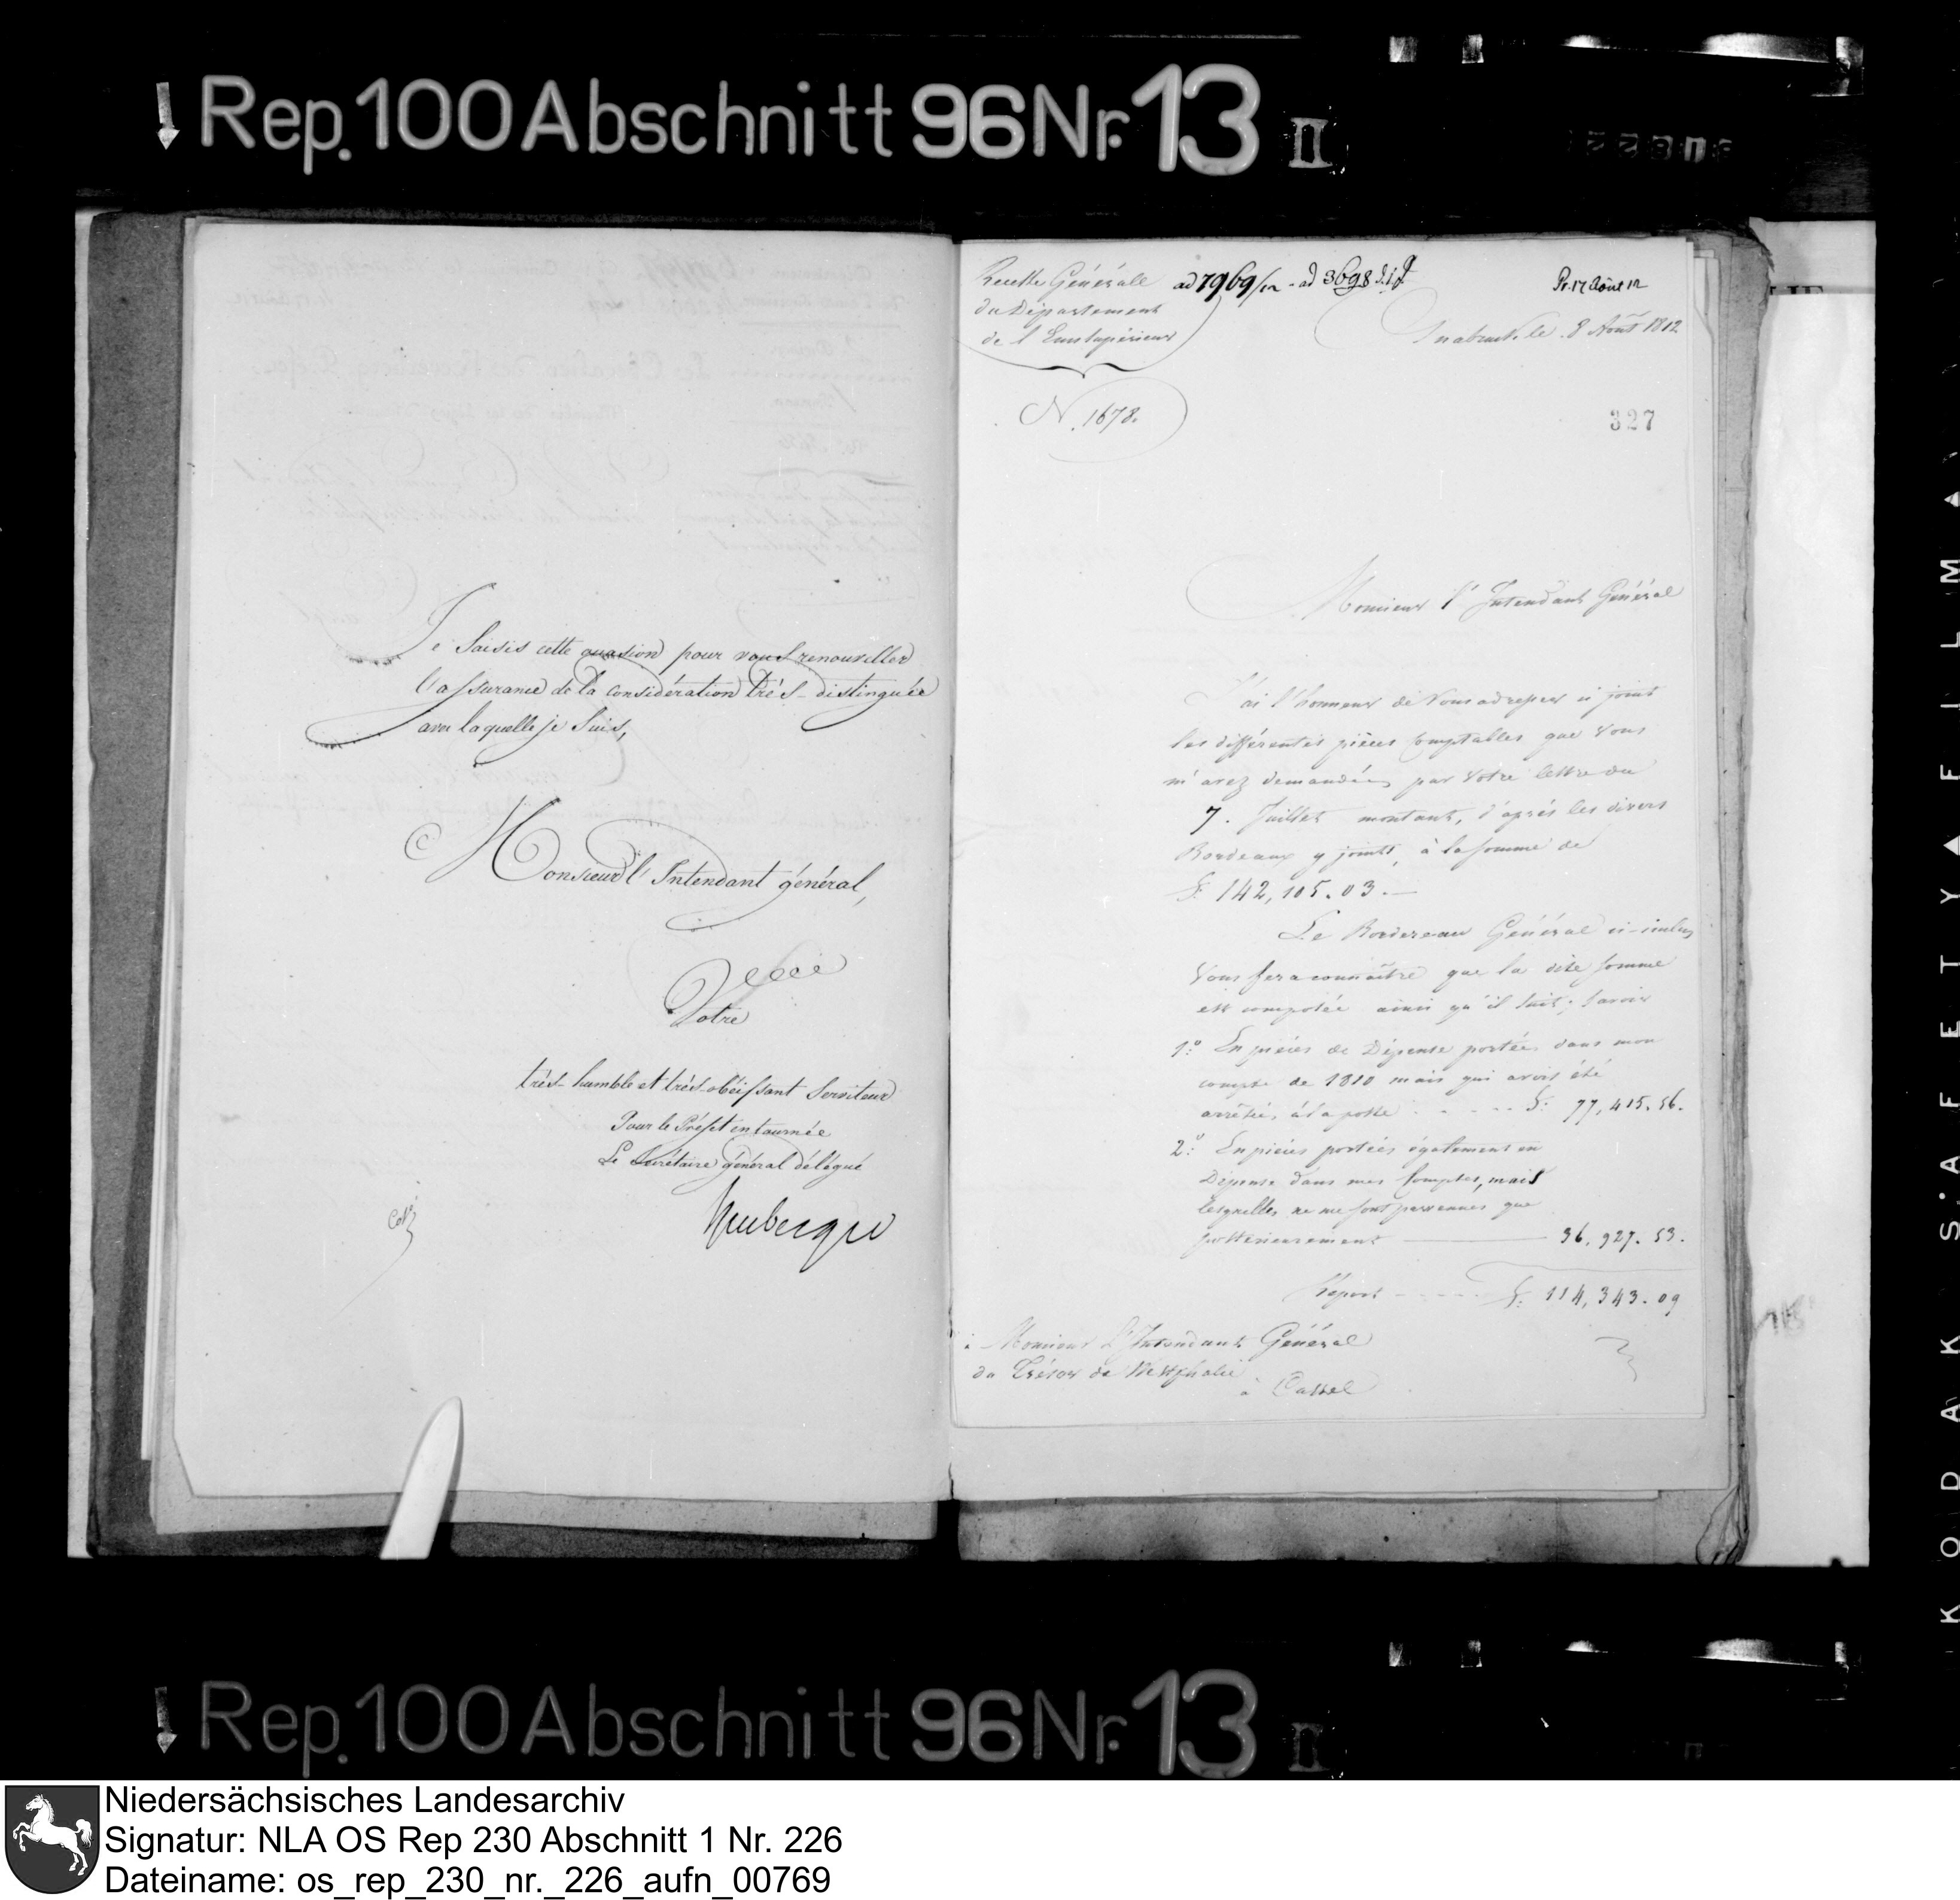 Rep. 100 Abschnitt 96 Nr. 13 II
Je saisis cette occasion pour vous renouveller
l'assurance de la considération très-distinguée
avec laquelle je suis,
Monsieur l'Intendant général,
Votre
très-humble et très-obéissant serviteur
Pour le Préfet en tournée
Le Secrétaire général délégué
Recette Générale
du Département
de l'Ems Supérieur
ad 7969/12 - ad 3698
Pr. 17 Août 12
Osnabruck, le 8 Août 1812
N. 1678.
327
Monsieur l'Intendant Général
J'ai l'honneur de Vous adresser ci joint
les différentes pièces comptables que Vous
m'avez demandées par Votre lettre du
7. Juillet montant, d'après les divers
Bordeaux y joints, à la somme de
F. 142,105.03.—
Le Bordereau Général ci-inclus
Vous fera connaître que la dite somme
est composée ainsi qu'il suit; savoir
1.° En pièces de Dépense portées dans mon
compte de 1810 mais qui avois été
arrêtées à la poste . . . . . F. 77,415.56.
2.° En pièces portées également en
Dépense dans mes Comptes, mais
lesquelles ne me sont parvenues que
postérieurement — 36,927.53.
Report . . . . F. 114,343.09
à Monsieur l'Intendant Général
du Trésor de Westphalie
à Cassel
KODAK S.A.F.E.T.Y ▲ FILM ▲
Rep. 100 Abschnitt 96 Nr. 13 II
Niedersächsisches Landesarchiv
Signatur: NLA OS Rep 230 Abschnitt 1 Nr. 226
Dateiname: os_rep_230_nr._226_aufn_00769